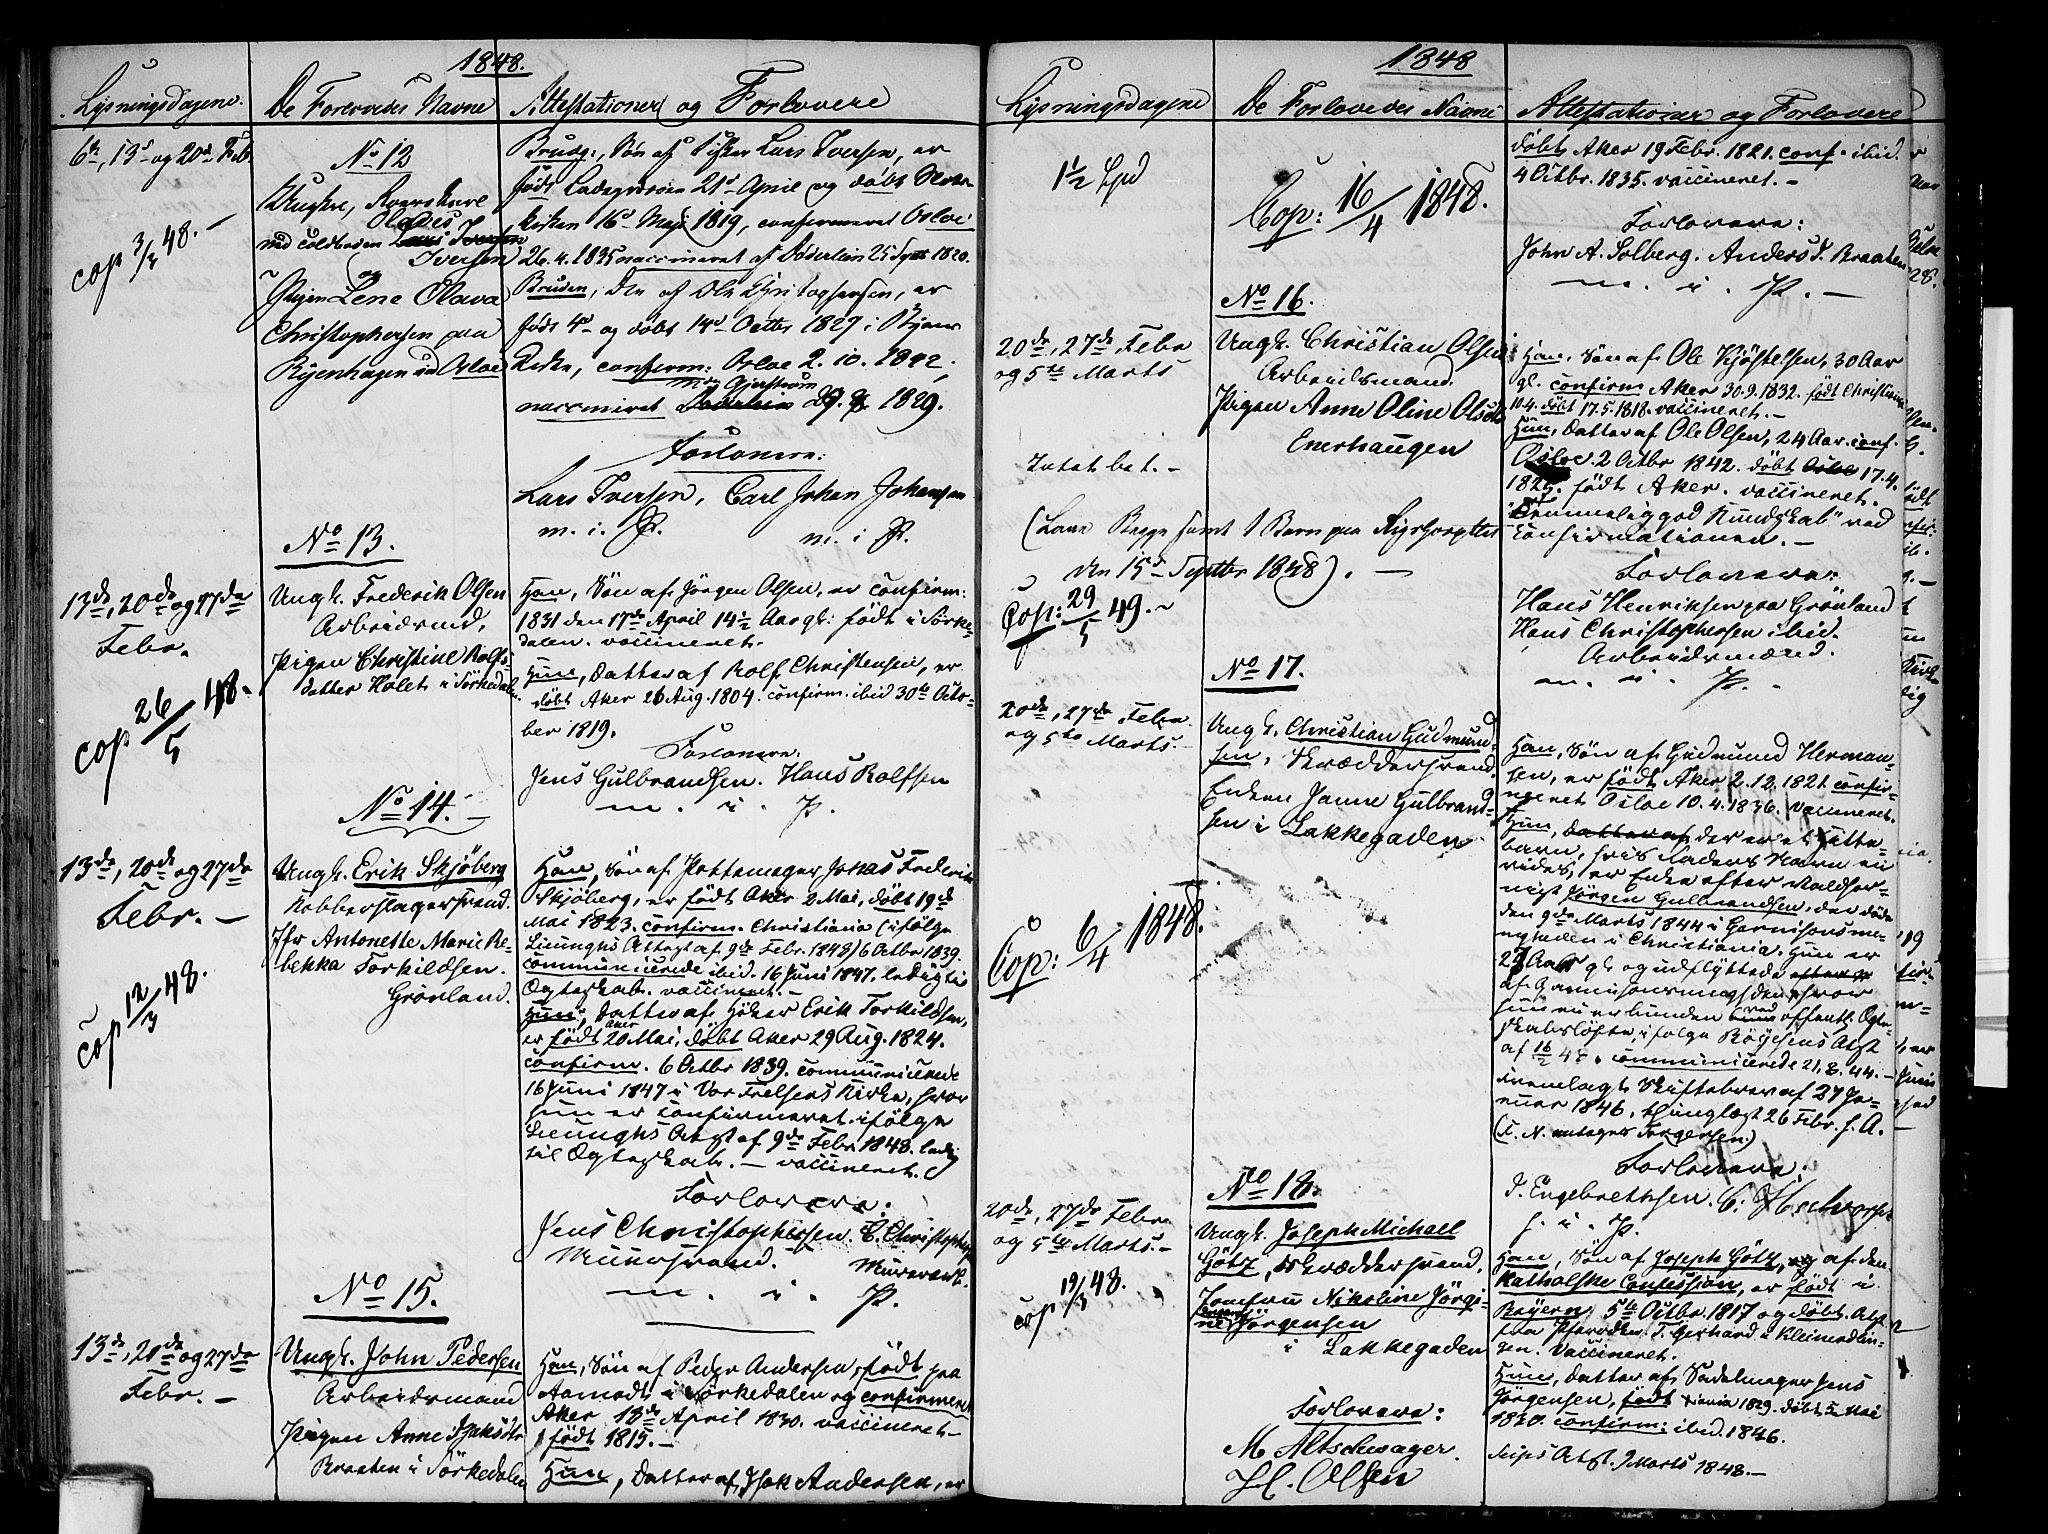 1848.
Lysningsdagene.
De Forlovedes Navne
Attestationer og Forlovere
6te, 13de og 20de Feb
No 12
Olavis
ved Toldboden Lars Iversen
Iversen
cop 3/3 48. -
Pigen Lene Olava
Christophersen paa
Ryenhagen ved Osloe
Brudg., Søn af Lars Iversen, er
født Ladegaardsøen 21de April og døbt
kirken 16de Mai 1819, confirmeret Osloe
26.4.1835 vaccineret af Døderlein 25 1820.
Bruden, Dtr af Ole Christophersen, er
født 4de og døbt 14de Octbr 1827 i
confirm: Osloe 2. 10. 1842,
vaccineret Døderlein 1829.
Forlovere:
Lars Iversen, Carl Johan Johansen
m. i. P. m. i P.
No 13.
13de, 20de og 27de
Febr.
cop 26/5 48.
Ungk. Frederik Olsen
Arbeidsmd,
Pigen Christine Rolfs-
datter Holet i Sørkedalen
Han, Søn af Jørgen Olsen, er confirm:
1831 den 17de April 14½ Aar gl: født i Sørke-
dalen. vaccineret.
Hun, Datter af Rolf Christensen, er
døbt Aker 26 Aug. 1804. confirm. ibid 30te Octo-
ber 1819.
Forlovere:
Jens Gulbrandsen. Hans Rolfsen
m. i. P.
No 14.
13de, 20de og 27de
Febr. -
cop 12/3 48.
Ungk. Erik Skjöberg
Kobberslagersvend.
Jfr Antonette Marie Re-
bekka Torkildsen.
Grønland.
Han, Søn af Pottemager Jonas Frederik
Skjöberg, er født Aker 2 Mai, døbt 19de
Mai 1823. confirm. Christiania (ifølge
Lieunghs Attest af 9de Febr. 1848) 6 Octbr 1839.
communicerede ibid. 16 Juni 1847. ledig til
Ægteskab. vaccineret. -
Hun, Datter af Høker Erik Torkildsen,
er født Aker 20 Mai, døbt Aker 29 Aug. 1824.
confirm. 6 Octbr 1839. communicerede
16 Juni 1847 i Vor Frelsers Kirke, hvor
hun er confirmeret ifølge
Lieunghs Attst af 9de Febr 1848. ledig
til Ægteskab. - vaccineret.
Forlovere:
Jens Christophersen. C. Christophersen
Muursvend. Murersv.
m. i. P.
No 15.
13de, 20de og 27de
Febr. -
Ungk. John Pedersen
Arbeidsmand
Pigen Anne Isaksdtr
Braaten i Sørkedalen
Han, Søn af Peder Andersen, født paa
Aamodt i Sørkedalen og confirmeret
Aker 18de April 1830. vaccineret -
født 1815. -
Hun, Datter af Isak Andersen, er
1848
Lysningsdagene
De Forlovedes Navne
Attestationer og Forlovere
1½ Spd
Cop: 16/4 1848.
døbt Aker 19 Febr. 1821. conf. ibid.
4 Octbr. 1835. vaccineret. -
Forlovere:
John A. Solberg. Anders I. Braaten
m. i. P. -
No 16.
20de, 27de Febr
og 5te Marts
Intet bet. -
Ungk. Christian Olsen
Arbeidsmand.
Pigen Anne Oline Olsdtr
Enerhaugen
(Laae Begge samt 1 Barn paa Rigshospitalet
den 15de Septbr 1848). -
Cop: 29/5 49. -
Han, Søn af Ole Kjöstelsen, 30 Aar
gl. confirm Aker 30.9.1832. født Christiania
10.4. døbt 17.5.1818. vaccineret. -
Hun, Datter af Ole Olsen, 24 Aar. conf.
Osloe. 2 Octbr 1842. døbt Osloe 17.4.
1825. født Aker. vaccineret.
"Temmelig god Kundskab" ved
Confirmationen. -
Forlovere:
Hans Henriksen paa Grönland
Hans Christophersen ibid.
Arbeidsmænd.
m. i. P.
No 17.
20de, 27de Febr.
og 5te Marts. -
Cop: 6/4 1848.
Ungk. Christian Gudmund-
sen, Skræddersvend.
Enken Janne Gulbrand-
sen i Lakkegaden
Han, Søn af Gudmund Herman-
sen, er født Aker 2.12.1821 confir-
meret Osloe 10.4.1836. vaccineret.
Hun, Datter af der er et Hitte-
barn, hvis Faders Navn ei
vides, er Enke efter Maldser-
Jørgen Gulbrandsen, der døde
den 9de Marts 1844 i Garnisonsme-
nigheden i Christiania. Hun er
27 Aar gl. og udflyttede
af Garnisonsmenigheden hvor
hun ei er bunden ved offentl. Ægte-
skabsløfte, ifølge Attst
af 16/2 48. communicerede 21.8.44. -
Fremlagt Skiftebrev af 27 Ja-
nuar 1846, thinglæst 26 Febr. s. A.
(F. N. antages Torgersen.)
Forlovere:
J. Engebrethsen. C.
s. i. P.
No 18.
20de, 27de Febr.
og 5te Marts. -
cop 19/3 48.
Ungk. Joseph Michael
Götz, Skræddersvend.
Jomfru Nikoline Jörgi-
ne Jörgensen
i Lakkegaden
Forlovere:
M. Altschwager.
H. Olsen
Han, Søn af Joseph Götz, og af den
Katholske Confession, er født i
Bayern 5te Octbr. 1817 og døbt. Attst
fra T. Gerhard i
vaccineret.
Hun, Datter af Sadelmager Jens
Jörgensen, født 1829. døbt 5 Mai
1830. confirm: ibid. 1846.
Attst. 9 Marts 1848. -